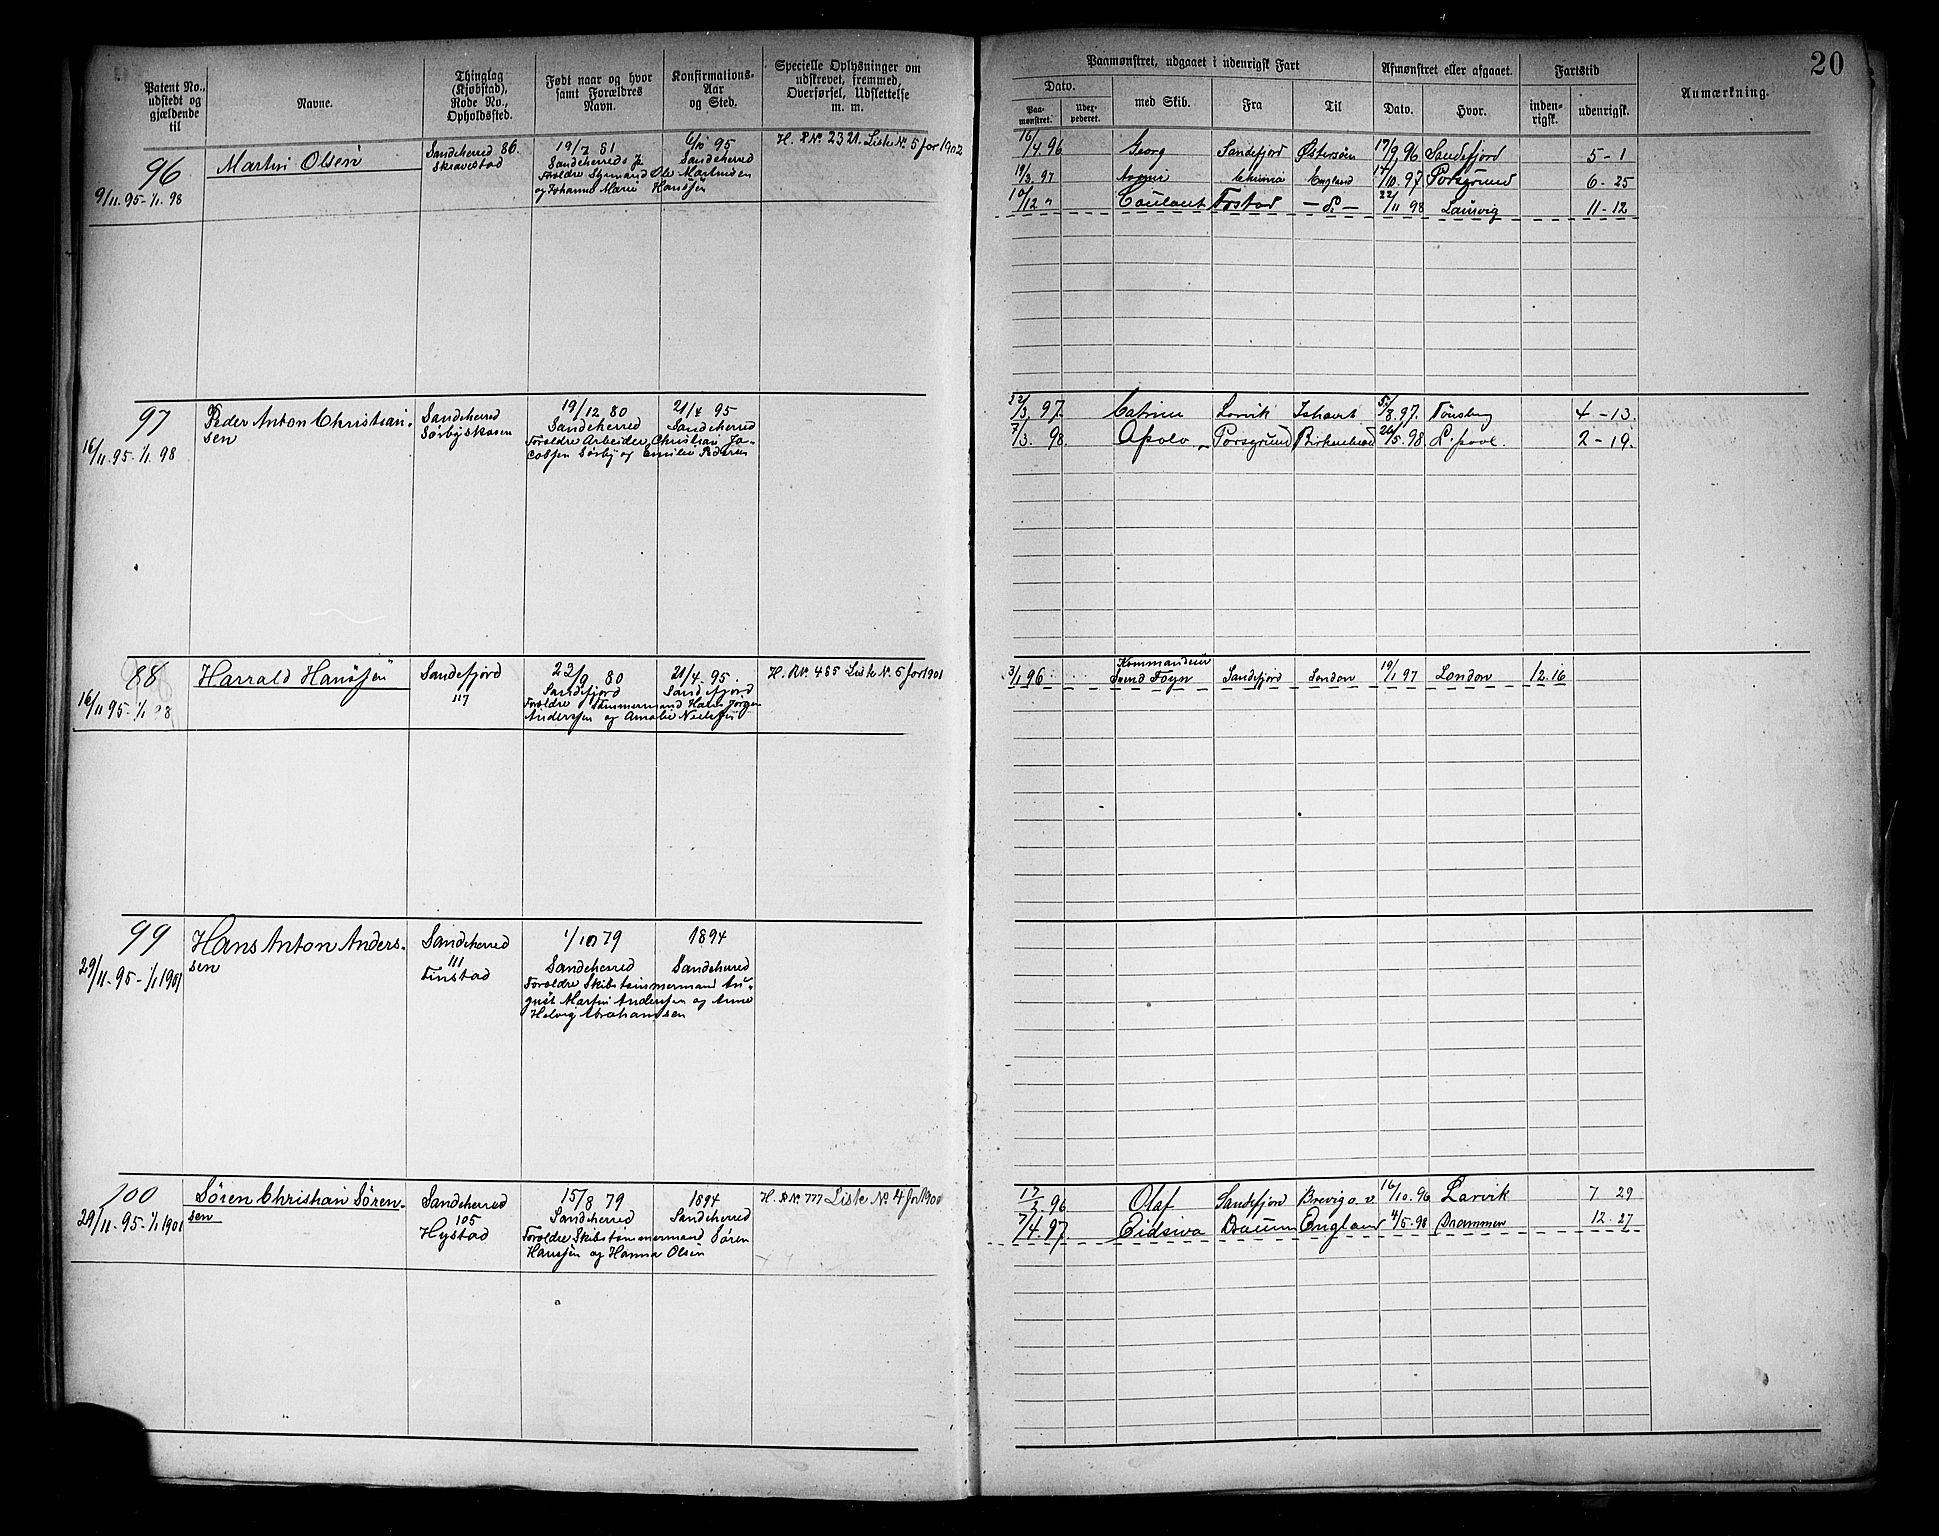 20
Patent No., udstedt og gjældende til
Navne.
Thinglag (Kjøbstad), Rode No., Opholdssted.
Født naar og hvor samt Forældres Navn.
Konfirmations-Aar og Sted.
Specielle Oplysninger om udskrevet, fremmed, Overførsel, Udslettelse m. m.
Paamønstret, udgaaet i udenrigsk Fart
Afmønstret eller afgaaet.
Fartstid
Anmærkning.
Dato.
Paa-mønstret.
udex-pederet.
med Skib.
Fra
Til
Dato.
Hvor.
inden-rigsk.
udenrigsk.
96
9/11. 95 - 1/1. 98
Martin Olsen
Sandeherred 86.
Skravestad
Sandeherreds
Forældre Styrmand Ole Martinsen
og Johanne Marie Hansen
6/10 95
Sandeherred
H. P.Nr. 2321. Liste Nr. 5 for 1902
16/4. 96 Georg Sandefjord Østersøen 17/9 96 Sandefjord 5 - 1
19/3. 97 England 14/10. 97 Porsgrund 6 - 25
10/12 " 22/11 98 Laurvig 11 - 12
97
16/11. 95 - 1/1. 98
Peder Anton Christian-
sen
Sandeherred
Sørbyskogen
19/12 80
Sandeherred
Forældre Arbeider Christian Ja-
cobsen Sørby og Emilie Pedersen
21/4 95
Sandeherred
22/3. 97. Catrine Larvik 5/8. 97. Tønsberg 4 - 13.
7/3. 98. Apolo Porsgrund Birkenhead 26/5. 98 L.pool 2 - 19.
98
16/11 95 - 1/1 98
Harrald Hansen
Sandefjord
117
22/9 80
Sandefjord
Forældre Tømmermand Hans Jørgen
Anderssen og Amalie Nielsen
21/4. 95.
Sandefjord
H. P.Nr. 465 Liste Nr. 5 for 1901
3/1 96 Kommandeur
Svend Foyn Sandefjord London 19/1 97 London 12. 16
99
29/11. 95 - 1/1 1901
Hans Anton Anders-
sen
Sandeherred
111
Finstad
1/10 79
Sandeherred
Forældre Skibstømmermand Au-
gust Martin Andersen og Anne
Helvig Abrahamsen
1894
Sandeherred
100
29/11. 95 - 1/1 1901
Søren Christian Søren-
sen
Sandeherred
105
Hystad
15/8 79
Sandeherred
Forældre Skibstømmermand Søren
Hanssen og Hanna Olsen
1894
Sandeherred
H. P.Nr. 777 Liste Nr. 4 for 1900
17/2. 96 Olaf Sandefjord Brevig o. v. 16/10. 96 Larvik 7. 29
7/4. 97. Eidsiva England 4/5. 98 Drammen 12. 27